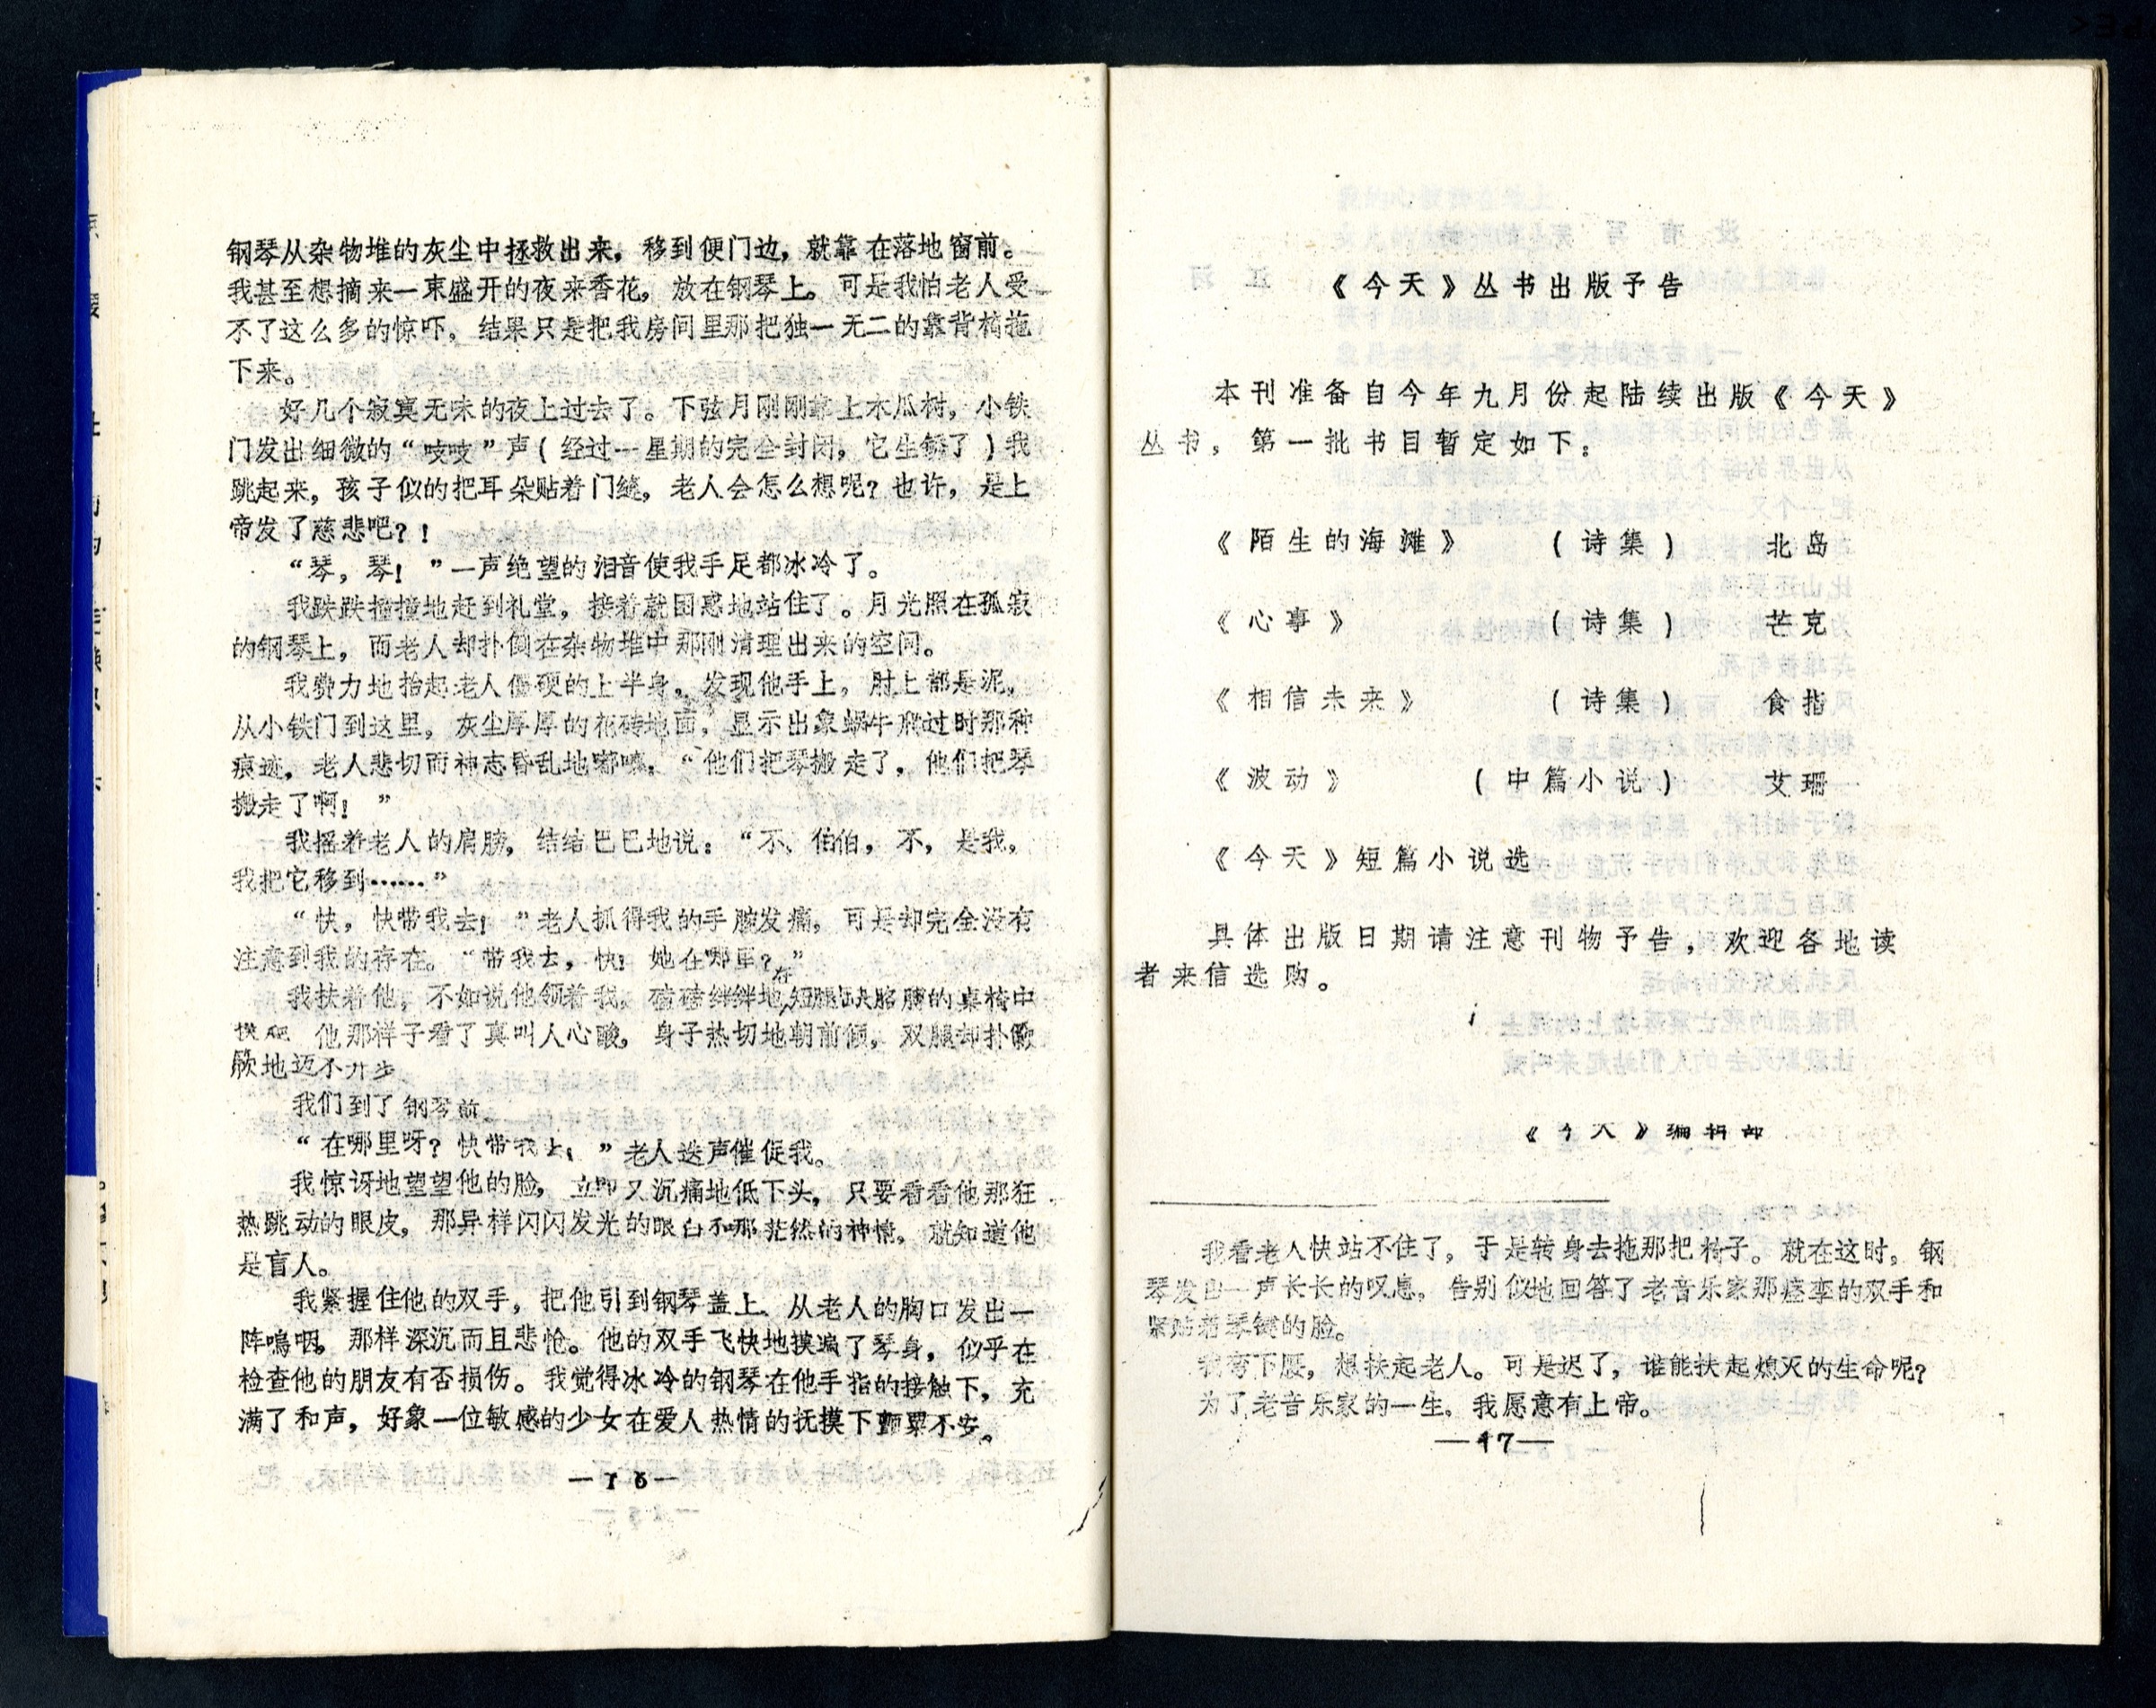 钢琴从杂物堆的灰尘中拯救出来，移到便门边，就靠在落地窗前。
我甚至想摘来一束盛开的夜来香花，放在钢琴上。可是我怕老人受
不了这么多的惊吓，结果只是把我房间里那把独一无二的靠背椅拖
下来。
好几个寂寞无味的夜上过去了。下弦月刚刚靠上木瓜树，小铁
门发出细微的“吱吱”声（经过一星期的完全封闭，它生锈了）我
跳起来，孩子似的把耳朵贴着门缝，老人会怎么想呢？也许，是上
帝发了慈悲吧？！
“琴，琴！”一声绝望的泪音使我手足都冰冷了。
我跌跌撞撞地赶到礼堂，接着就困惑地站住了。月光照在孤寂
的钢琴上，而老人却扑倒在杂物堆中那刚清理出来的空间。
我费力地抬起老人僵硬的上半身。发现他手上，肘上都是泥，
从小铁门到这里，灰尘厚厚的花砖地面，显示出象蜗牛爬过时那种
痕迹，老人悲切而神志昏乱地嘟嚷，“他们把琴搬走了，他们把琴
搬走了啊！”
我摇着老人的肩膀，结结巴巴地说：“不，伯伯，不，是我，
我把它移到……”
“快，快带我去！”老人抓得我的手腕发痛，可是却完全没有
注意到我的存在。“带我去，快！她在哪里？”
我扶着他，不如说他领着我，磕磕绊绊地在短腿缺胳膊的桌椅中
摸爬 他那样子看了真叫人心酸，身子热切地朝前倾，双腿却扑儆
簌地迈不开步
我们到了钢琴前。
“在哪里呀？快带我去，”老人迭声催促我。
我惊讶地望望他的脸，立即又沉痛地低下头，只要看看他那狂
热跳动的眼皮，那异样闪闪发光的眼白和那茫然的神情，就知道他
是盲人。
我紧握住他的双手，把他引到钢琴盖上、从老人的胸口发出一
阵鸣咽，那样深沉而且悲怆。他的双手飞快地摸遍了琴身，似乎在
检查他的朋友有否损伤。我觉得冰冷的钢琴在他手指的接触下，充
满了和声，好象一位敏感的少女在爱人热情的抚摸下颤栗不安。
—16—
《今天》丛书出版予告
本刊准备自今年九月份起陆续出版《今天》
丛书，第一批书目暂定如下：
《陌生的海滩》 （诗集） 北岛
《心事》 （诗集） 芒克
《相信未来》 （诗集） 食指
《波动》 （中篇小说） 艾珊
《今天》短篇小说选
具体出版日期请注意刊物予告，欢迎各地读
者来信选购。
《今天》编辑部
我看老人快站不住了，于是转身去拖那把椅子。就在这时，钢
琴发出一声长长的叹息，告别似地回答了老音乐家那痉挛的双手和
紧贴着琴键的脸。
我弯下腰，想扶起老人。可是迟了，谁能扶起熄灭的生命呢？
为了老音乐家的一生，我愿意有上帝。
—17—